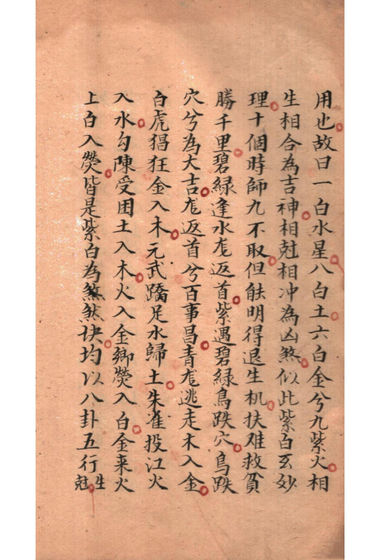 用也故曰一白水星八白土六白金兮九紫火相
生相合為吉神相尅相冲為凶煞似此紫白玄妙
理十個時師九不取但能明得退生机扶难救貧
勝千里碧綠逢水龙返首紫遇碧綠鳥跌穴鳥跌
穴兮為大吉龙返首兮百事昌青龙逃走木入金
白虎猖狂金入木元武蹻足水歸土朱雀投江火
入水勾陳受困土入木火入金鄉熒入白金来火
上白入熒皆是紫白為煞煞诀均以八卦五行生尅